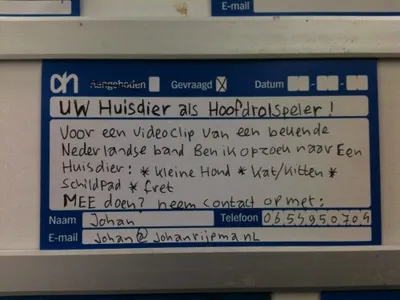 E-mail
E-mail
ah Aangeboden Gevraagd X Datum
UW Huisdier als Hoofdrolspeler !
Voor een videoclip van een bekende
Nederlandse band Ben ik op zoek naar Een
Huisdier: * Kleine Hond * Kat/Kitten *
Schildpad * fret
MEE doen? neem contact op met:
Naam Johan Telefoon 0654950704
E-mail Johan@Johanrijpma.nL